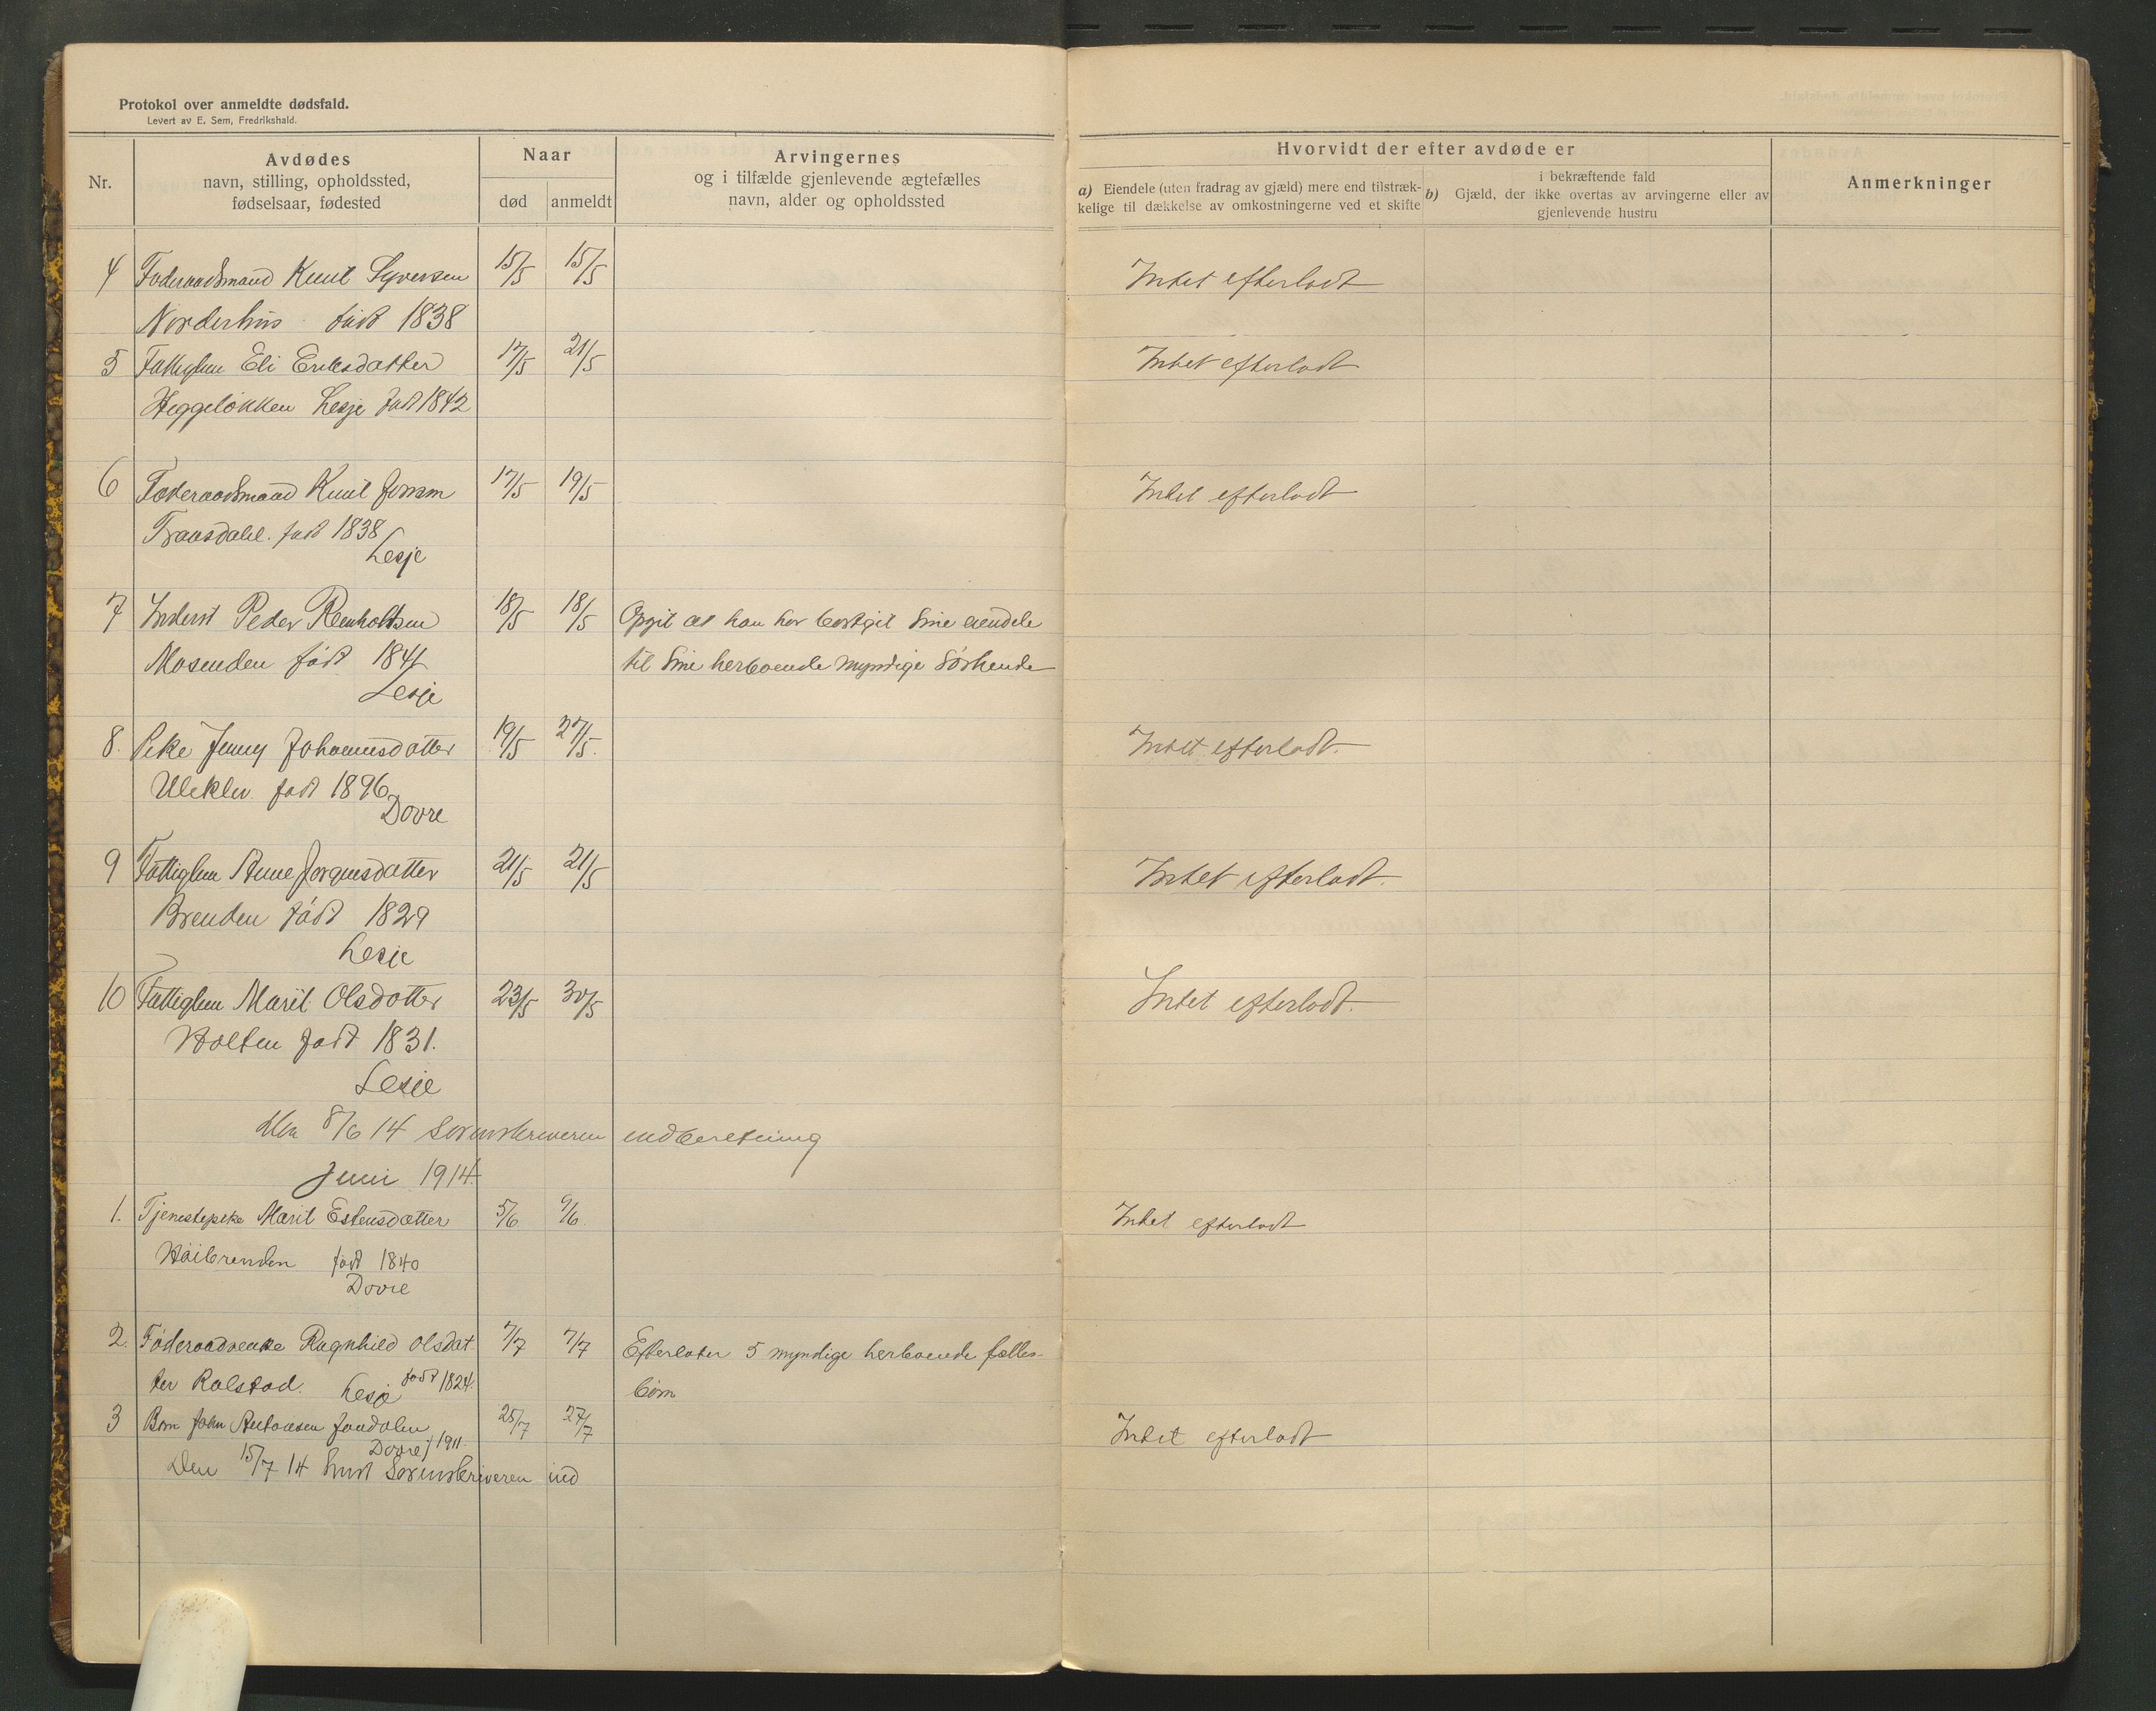 Protokol over anmeldte dødsfald.
Levert av E. Sem, Fredrikshald.
Nr.
Avdødes
navn, stilling, opholdssted,
fødselsaar, fødested
Naar
død
anmeldt
Arvingernes
og i tilfælde gjenlevende ægtefælles
navn, alder og opholdssted
Hvorvidt der efter avdøde er
a) Eiendele (uten fradrag av gjæld) mere end tilstræk-
kelige til dækkelse av omkostningerne ved et skifte
i bekræftende fald
b) Gjæld, der ikke overtas av arvingerne eller av
gjenlevende hustru
Anmerkninger
4 Føderaadsmand Knut Syversen 15/5 15/5 Intet efterladt
Norderhus født 1838
5 Fattiglem Eli Eriksdatter 17/5 21/5 Intet efterladt
Heggeløkken Lesje født 1842
6 Føderaadsmand Knut 17/5 19/5 Intet efterladt
født 1838
Lesje
7 Inderst Peder 18/5 18/5 Opgit at han har bortgit sine eiendele
Mosenden født 1841 til sine herboende myndige søskende
Lesje
8. Pike Jenny Johannesdatter 19/5 27/5. Intet efterladt.
Uleklev født 1896
Dovre
9 Fattiglem Anne Jørgensdatter 21/5 21/5 Intet efterladt.
Brenden født 1829
Lesje
10 Fattiglem Marit Olsdatter 23/5 30/5 Intet efterladt.
Holten født 1831.
Lesje
den 8/6 14 sorenskriveren indberetning
Juni 1914.
1. Tjenestepike Marit Estensdatter 5/6 9/6. Intet efterladt
Høibrenden født 1840
Dovre
2. Føderaadsenke Ragnhild Olsdat 7/7 7/7 Efterlater 5 myndige herboende fælles-
ter Kolstad. Lesje født 1824. børn
3 Barn John Jondalen 25/7 27/7 Intet efterladt
Dovre f 1911.
Den 15/7 14 sendt Sorenskriveren ind